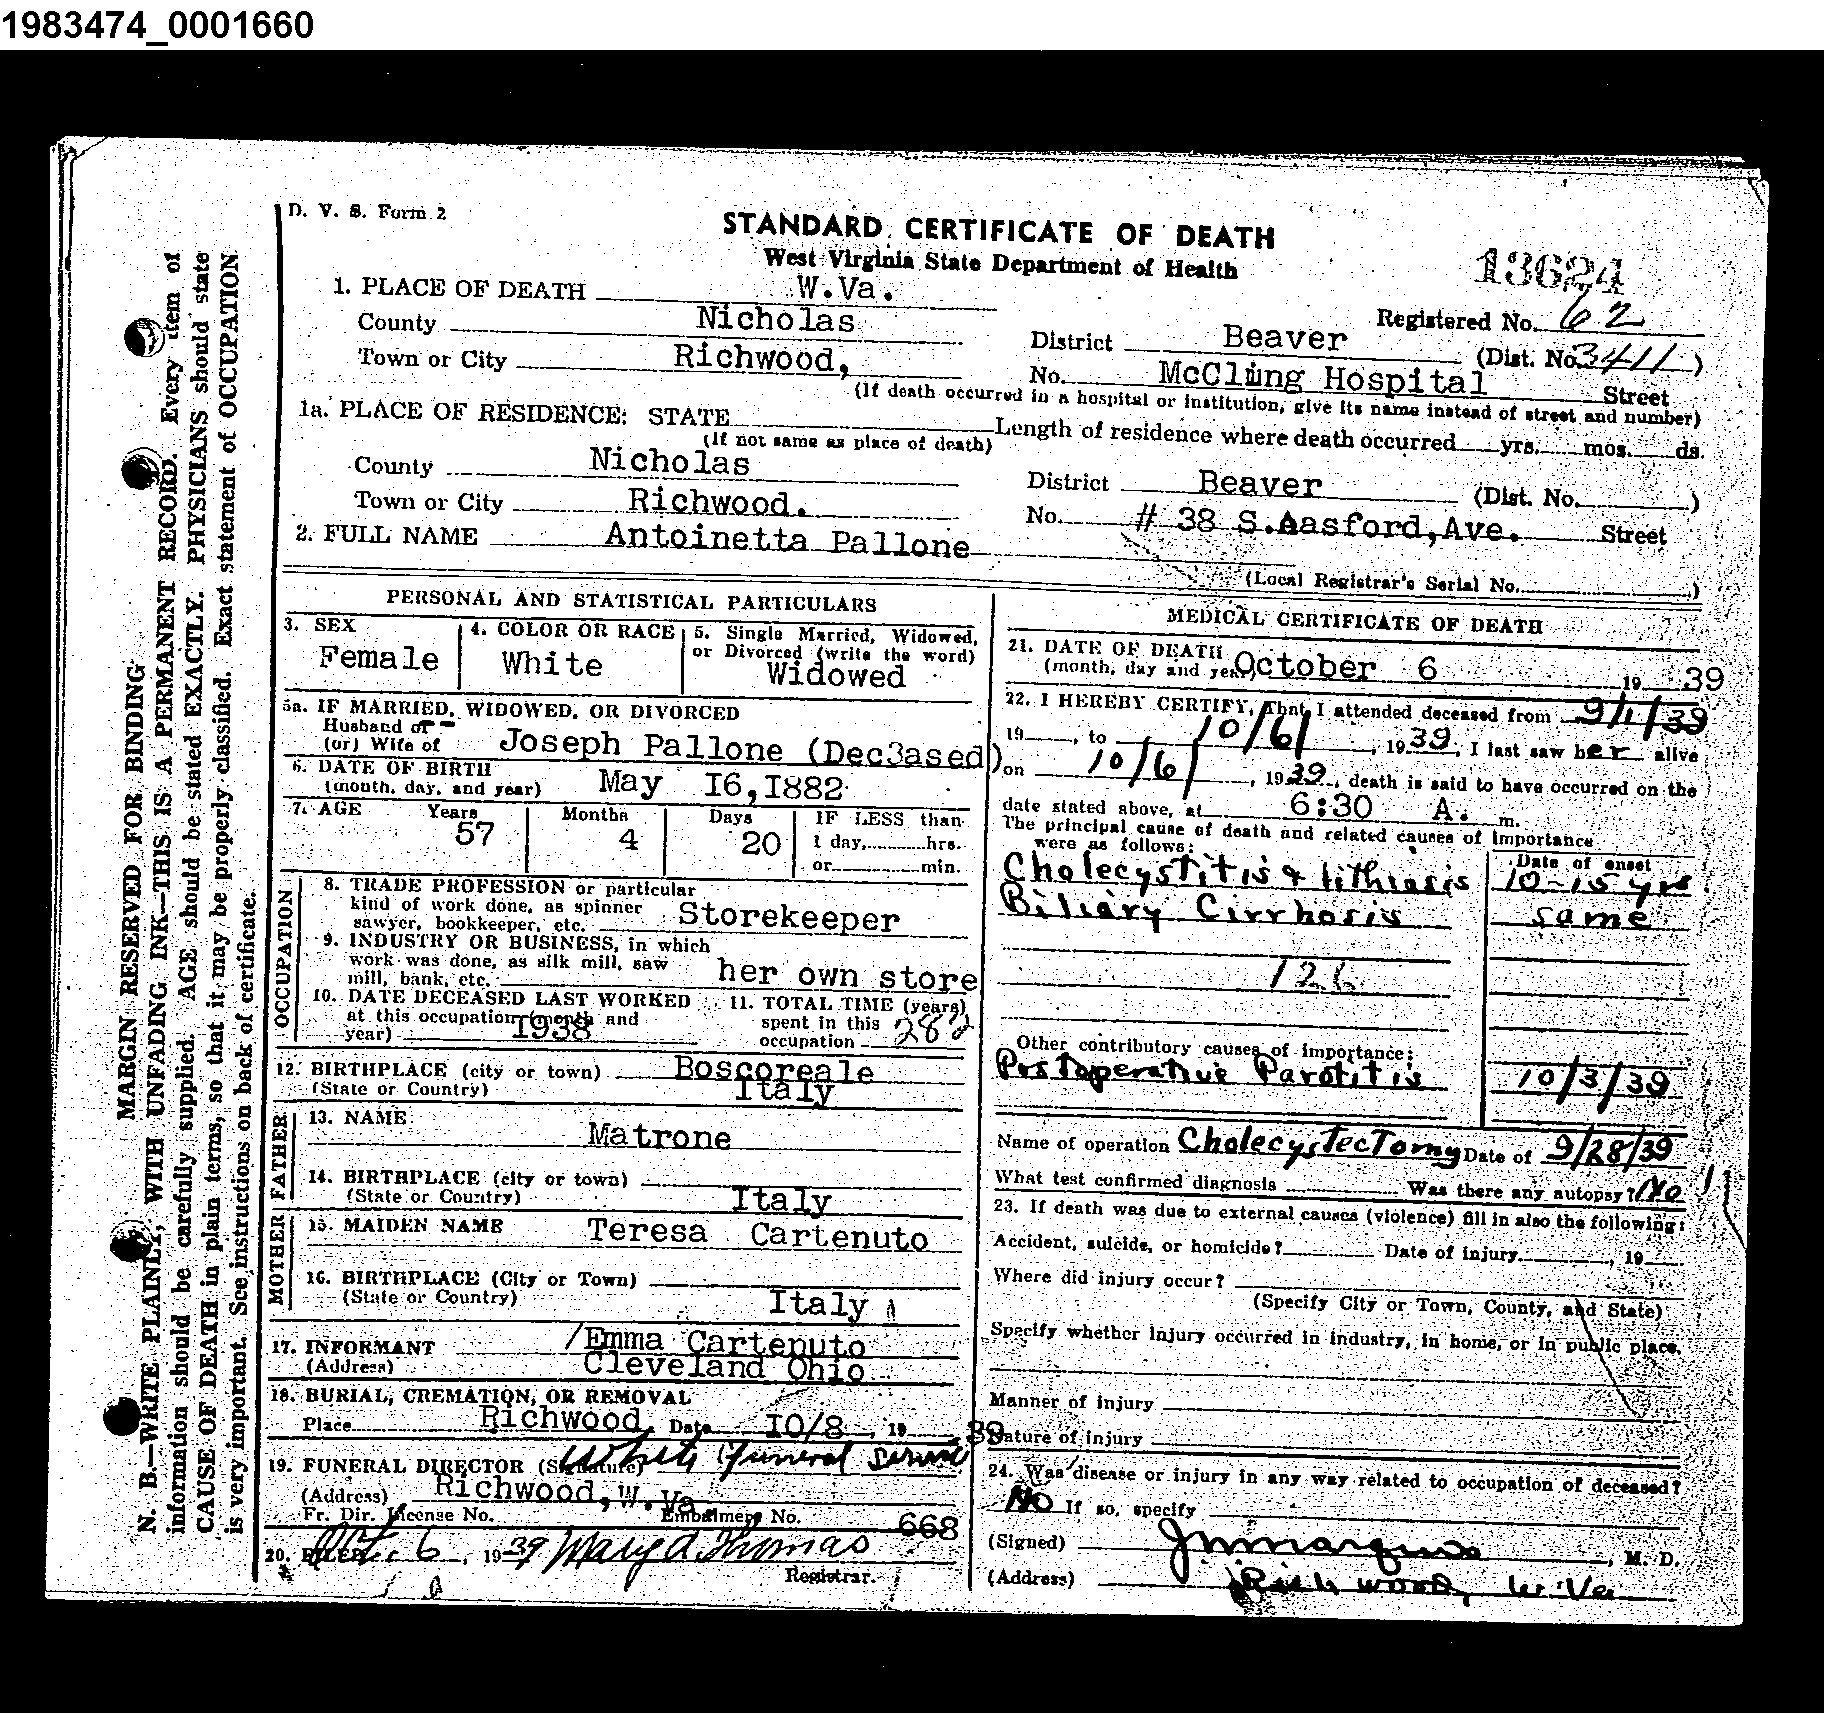 1983474_0001660
D. V. S. Form 2
STANDARD CERTIFICATE OF DEATH
West Virginia State Department of Health
13624
1. PLACE OF DEATH W.Va.
Registered No. 62
County Nicholas
District Beaver (Dist. No. 3411)
Town or City Richwood,
No. McClung Hospital Street
(If death occurred in a hospital or institution, give its name instead of street and number)
1a. PLACE OF RESIDENCE: STATE
(If not same as place of death)
Length of residence where death occurred yrs. mos. ds.
County Nicholas
District Beaver (Dist. No. )
Town or City Richwood.
No. # 38 S. Street
2. FULL NAME Antoinetta Pallone
(Local Registrar's Serial No. )
PERSONAL AND STATISTICAL PARTICULARS
3. SEX Female
4. COLOR OR RACE White
5. Single Married, Widowed,
or Divorced (write the word)
Widowed
5a. IF MARRIED, WIDOWED, OR DIVORCED
Husband of
(or) Wife of Joseph Pallone (Dec3ased)
6. DATE OF BIRTH
(month, day, and year) May I6,I882
7. AGE Years 57 Months 4 Days 20
IF LESS than
1 day, hrs.
or min.
OCCUPATION
8. TRADE PROFESSION or particular
kind of work done, as spinner
sawyer, bookkeeper, etc. Storekeeper
9. INDUSTRY OR BUSINESS, in which
work was done, as silk mill, saw
mill, bank, etc. her own store
10. DATE DECEASED LAST WORKED
at this occupation (month and
year) I938
11. TOTAL TIME (years)
spent in this
occupation 28
12. BIRTHPLACE (city or town) Boscoreale
(State or Country) Italy
FATHER
13. NAME Matrone
14. BIRTHPLACE (city or town)
(State or Country) Italy
MOTHER
15. MAIDEN NAME Teresa Cartenuto
16. BIRTHPLACE (City or Town)
(State or Country) Italy
17. INFORMANT Emma Cartenuto
(Address) Cleveland Ohio
18. BURIAL, CREMATION, OR REMOVAL
Place Richwood Date I0/8, 19 39
19. FUNERAL DIRECTOR (Signature) White Funeral Service
(Address) Richwood, W.Va.
Fr. Dir. License No. Embalmers No. 668
20. FILED Oct. 6, 1939 Mary A Thomas
Registrar.
MEDICAL CERTIFICATE OF DEATH
21. DATE OF DEATH
(month, day and year) October 6 19 39
22. I HEREBY CERTIFY, That I attended deceased from 9/1/39
19 , to 10/6/, 1939, I last saw her alive
on 10/6/, 1939, death is said to have occurred on the
date stated above, at 6:30 A. m.
The principal cause of death and related causes of importance
were as follows:
Date of onset
Cholecystitis & lithiasis 10-15 yrs
Biliary Cirrhosis same
126
Other contributory causes of importance:
Postoperative Parotitis 10/3/39
Name of operation Cholecystectomy Date of 9/28/39
What test confirmed diagnosis Was there any autopsy? No
23. If death was due to external causes (violence) fill in also the following:
Accident, suicide, or homicide? Date of injury , 19
Where did injury occur?
(Specify City or Town, County, and State)
Specify whether injury occurred in industry, in home, or in public place.
Manner of injury
Nature of injury
24. Was disease or injury in any way related to occupation of deceased?
No If so, specify
(Signed) , M. D.
(Address) Richwood, W.Va
MARGIN RESERVED FOR BINDING
N. B.—WRITE PLAINLY, WITH UNFADING INK—THIS IS A PERMANENT RECORD. Every item of
information should be carefully supplied. AGE should be stated EXACTLY. PHYSICIANS should state
CAUSE OF DEATH in plain terms, so that it may be properly classified. Exact statement of OCCUPATION
is very important. See instructions on back of certificate.